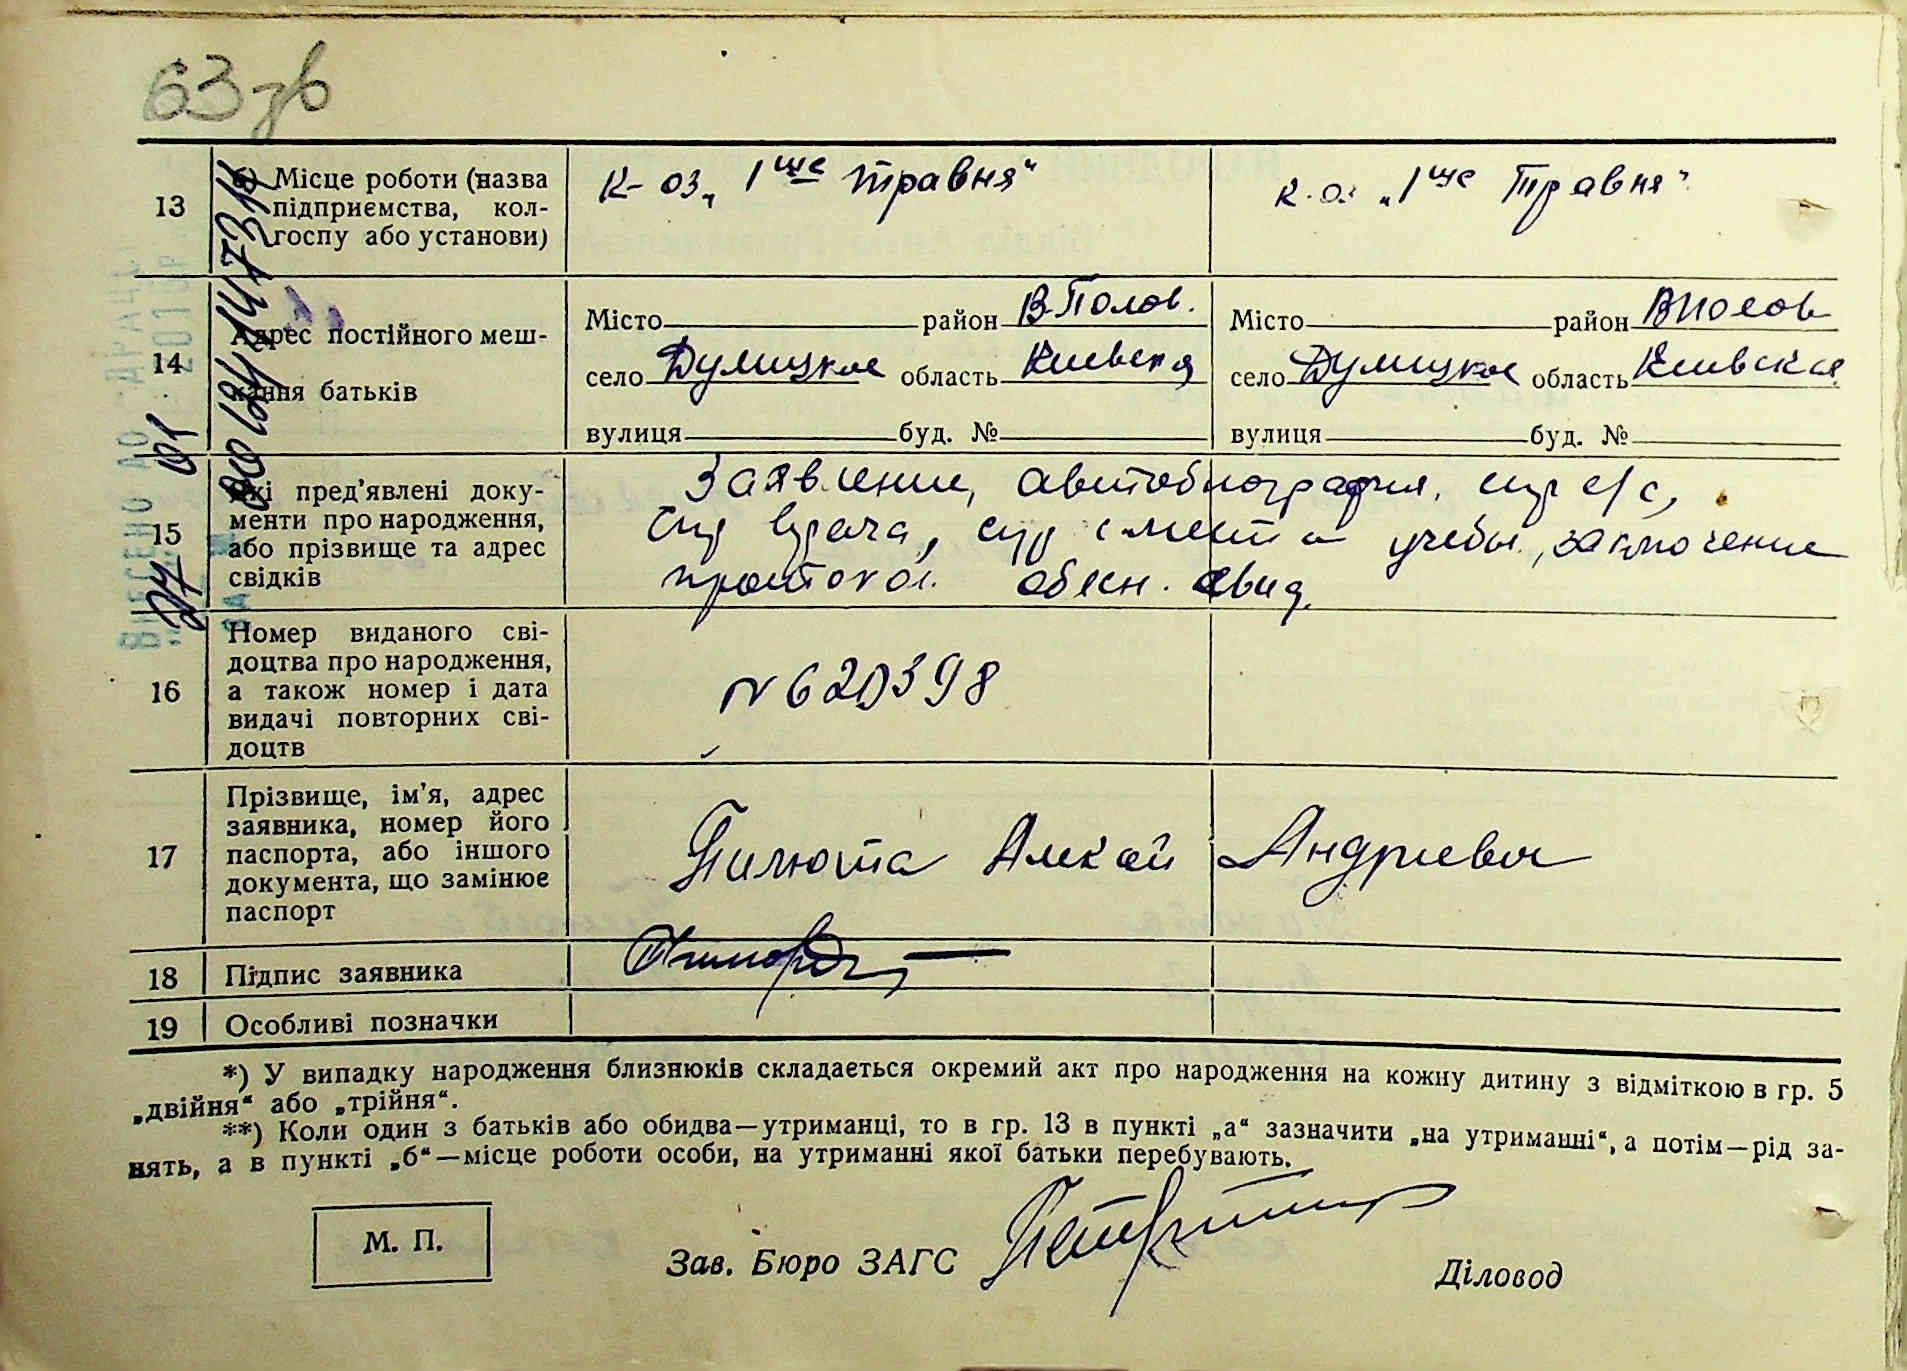 63 зв
13
б) Місце роботи (назва
підприємства, кол-
госпу або установи)
К-оз „1 ше травня“
к-оз „1 ше Травня“
14
Адрес постійного меш-
кання батьків
Місто район В-Полов.
село Дулицкое область Киевская
вулиця буд. №
Місто район В Полов
село Дулицкое область Киевская
вулиця буд. №
15
Які пред’явлені доку-
менти про народження,
або прізвище та адрес
свідків
Заявление, автобиография, спр с/с,
спр врача, спр с места учебы, заключение
протокол обясн. свид.
16
Номер виданого сві-
доцтва про народження,
а також номер і дата
видачі повторних сві-
доцтв
N 620398
17
Прізвище, ім’я, адрес
заявника, номер його
паспорта, або іншого
документа, що замінює
паспорт
Пилюта Алексей Андреевич
18
Підпис заявника
19
Особливі позначки
*) У випадку народження близнюків складається окремий акт про народження на кожну дитину з відміткою в гр. 5
„двійня“ або „трійня“.
**) Коли один з батьків або обидва—утриманці, то в гр. 13 в пункті „а“ зазначити „на утриманні“, а потім—рід за-
нять, а в пункті „б“—місце роботи особи, на утриманні якої батьки перебувають.
М. П.
Зав. Бюро ЗАГС
Діловод